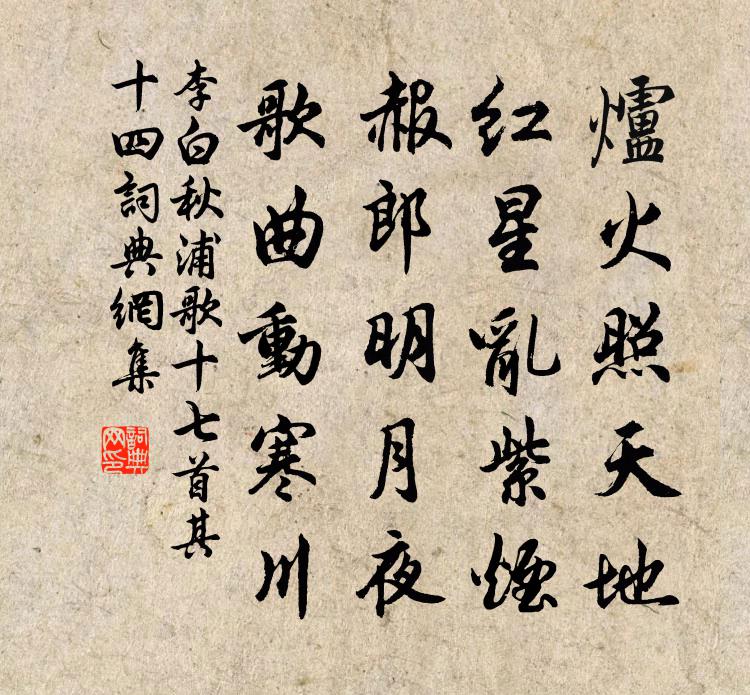 爐火照天地
红星亂紫煙
赧郎明月夜
歌曲動寒川
李白秋浦歌十七首其
十四詞典網集
詞典
网印